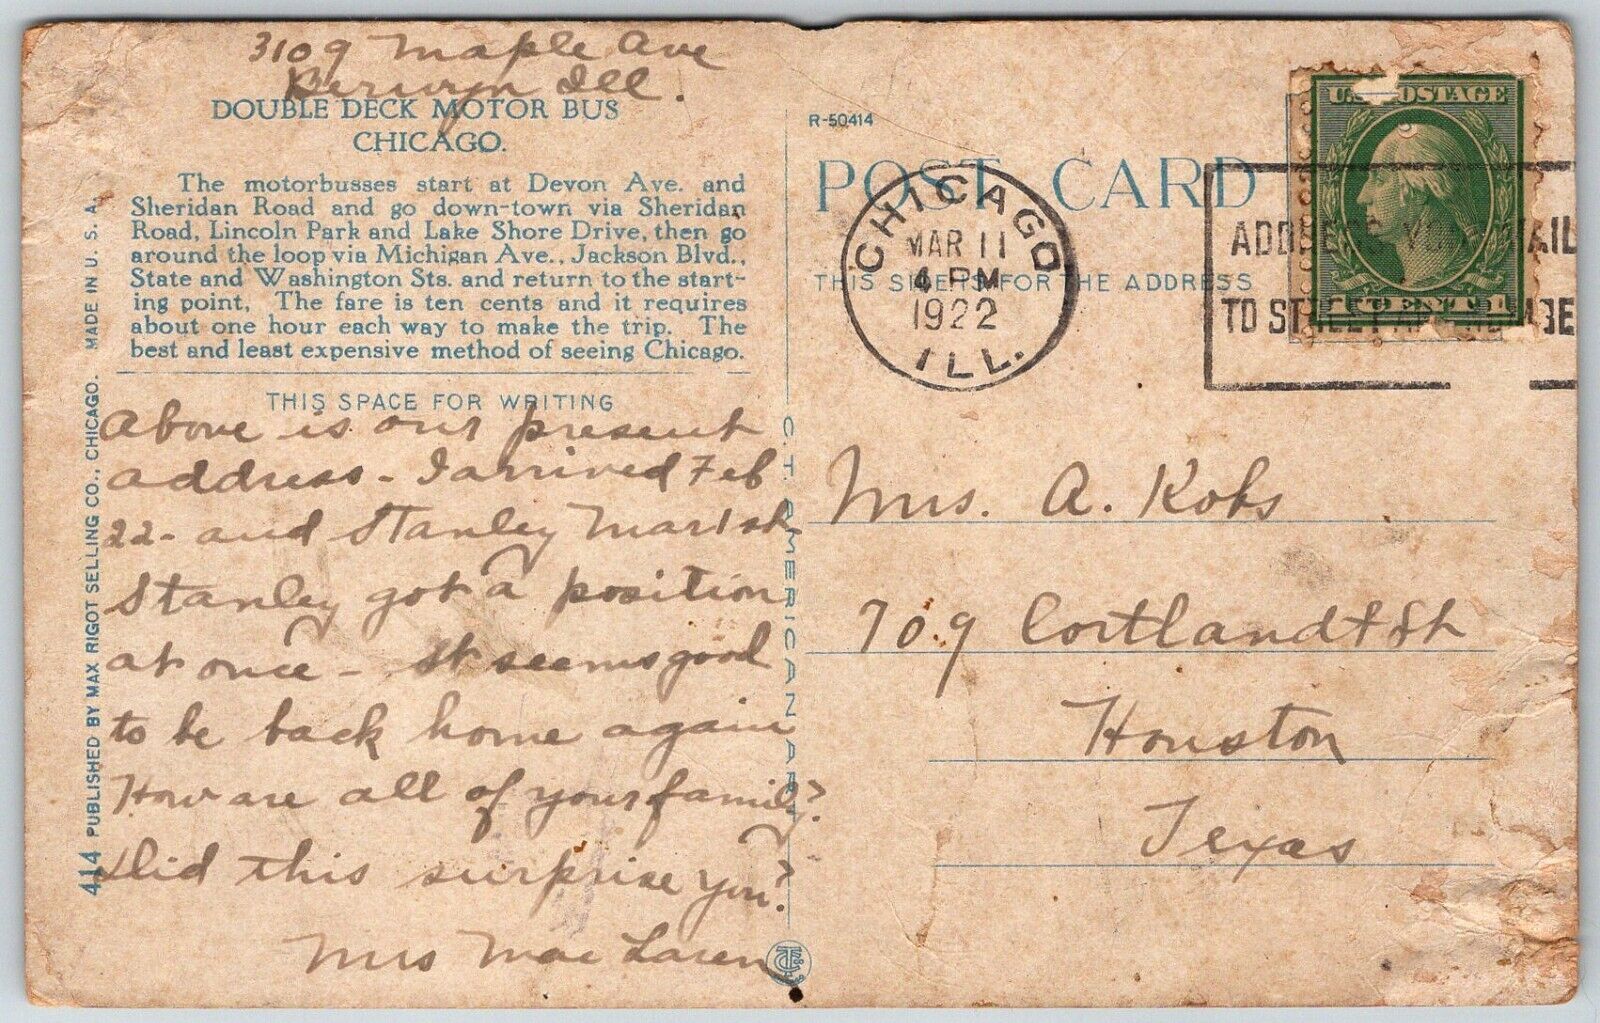 3109 Maple Ave
Berwyn Ill.
DOUBLE DECK MOTOR BUS
CHICAGO.
The motorbusses start at Devon Ave. and
Sheridan Road and go down-town via Sheridan
Road, Lincoln Park and Lake Shore Drive, then go
around the loop via Michigan Ave., Jackson Blvd.,
State and Washington Sts. and return to the start-
ing point. The fare is ten cents and it requires
about one hour each way to make the trip. The
best and least expensive method of seeing Chicago.
THIS SPACE FOR WRITING
Above is our present
address - I arrived Feb
22 - and Stanley Mar 1st
Stanley got a position
at once - It seems good
to be back home again
How are all of your family?
Did this surprise you?
Mrs Mac Laren
414 PUBLISHED BY MAX RIGOT SELLING CO., CHICAGO. MADE IN U. S. A.
C. T. AMERICAN ART
R-50414
POST CARD
THIS SIDE IS FOR THE ADDRESS
CHICAGO
MAR 11
4 PM
1922
ILL.
ADDRESS YOUR MAIL
TO STREET AND NUMBE
U.S. POSTAGE
1 CENT 1
Mrs. A. Kobs
709 Cortlandt St
Houston
Texas